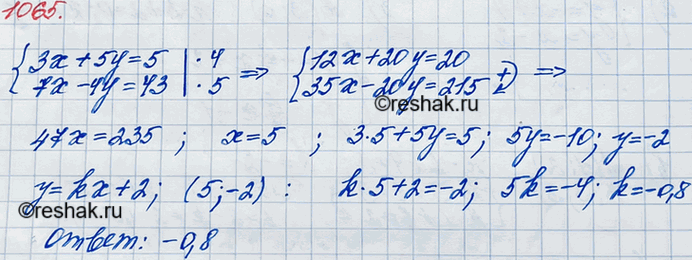 1065.
{3x+5y=5 |·4
7x-4y=43 |·5 => {12x+20y=20
35x-20y=215 +) =>
©reshak.ru
47x=235 ; x=5 ; 3·5+5y=5; 5y=-10; y=-2
y=kx+2; (5;-2) : k·5+2=-2; 5k=-4; k=-0,8
©reshak.ru
Ответ: -0,8